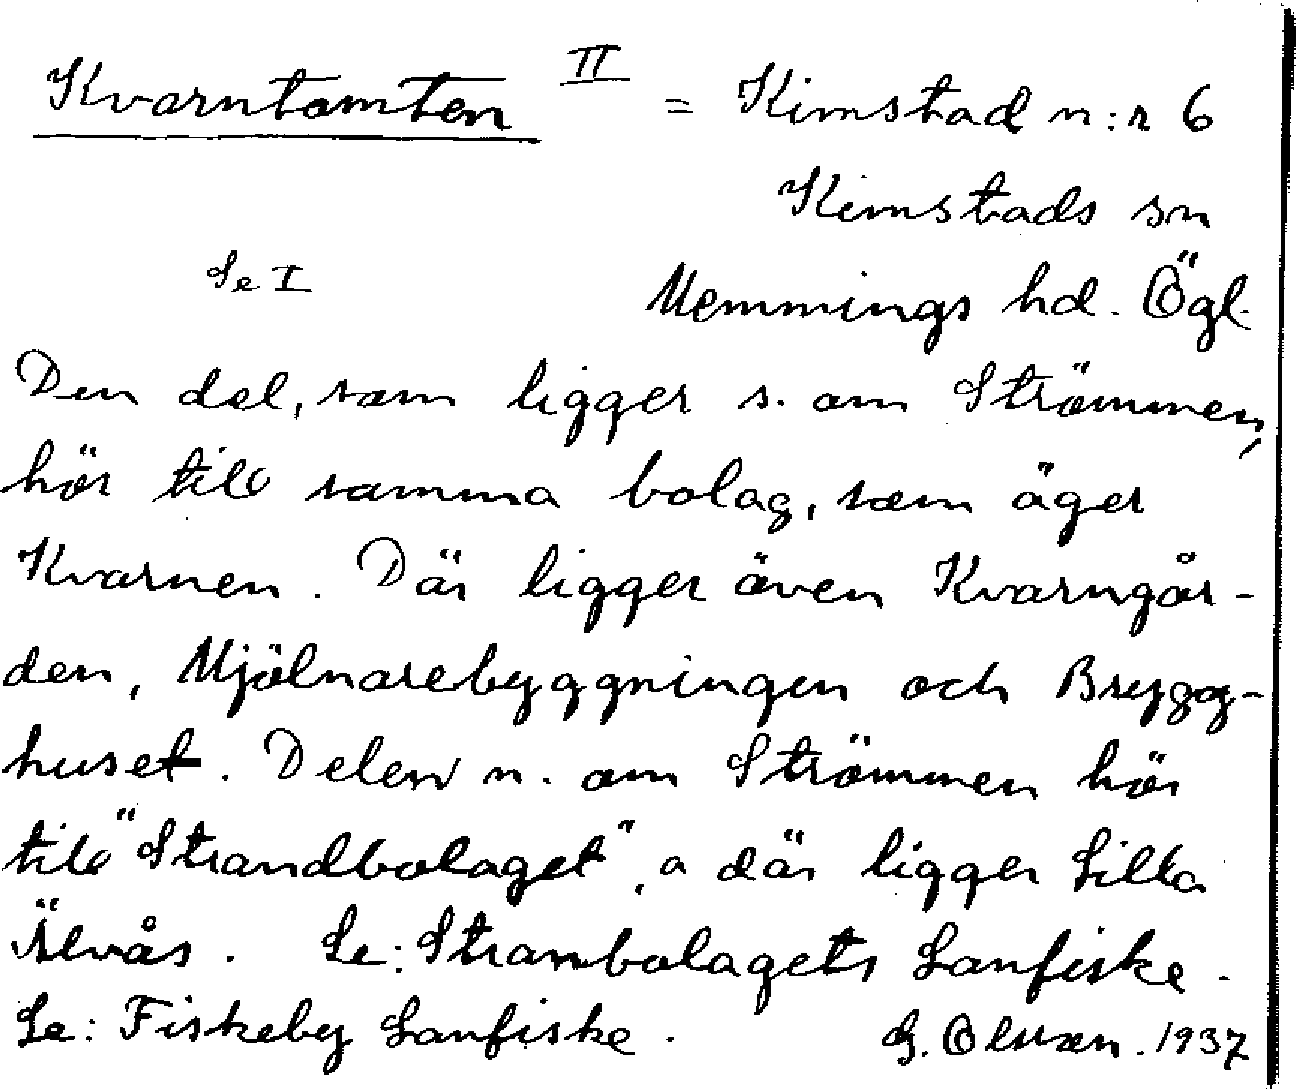 Kvarntomten II = Kimstad n:r 6
Kimstads sn
Se I Memmings hd. Ögl.
Den del, som ligger s. om Strömmen,
hör till samma bolag, som äger
Kvarnen. Där ligger även Kvarngår-
den, Mjölnarebyggningen och Brygg-
huset. Delen n. om Strömmen hör
till "Strandbolaget", o där ligger Lilla
Älvås. Se: Strambolagets Lanfiske.
Se: Fiskeby Lanfiske. G. Olsson. 1937